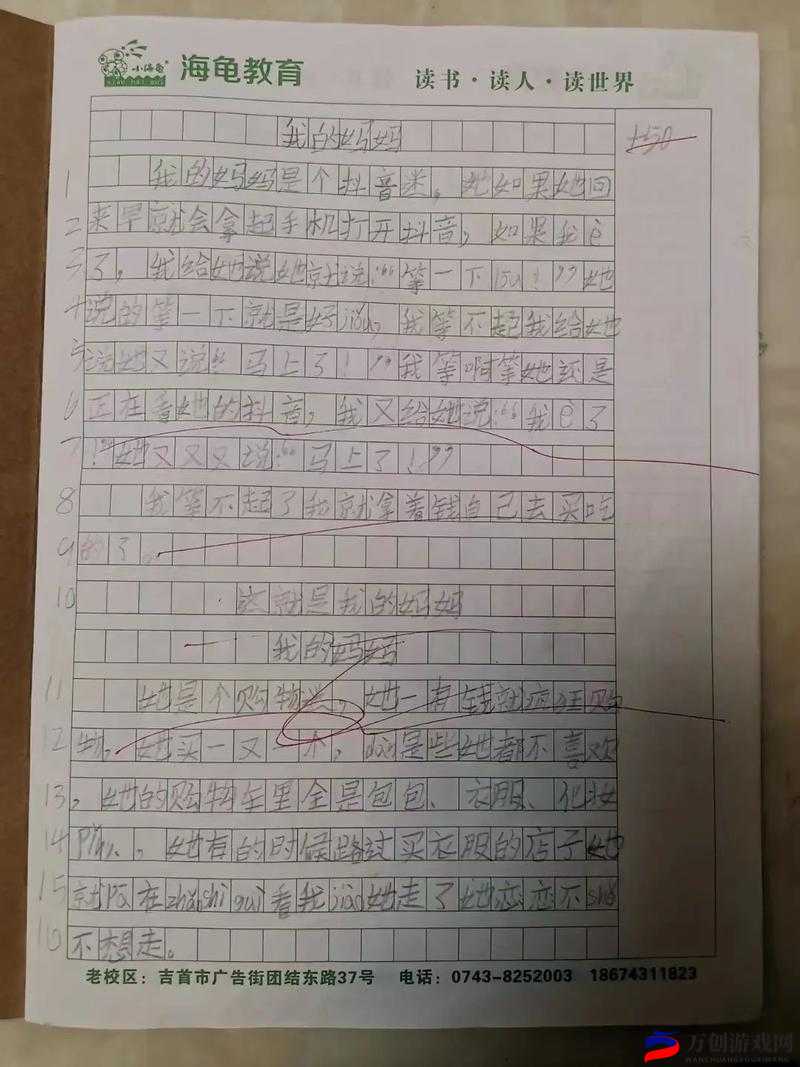 小海龟
海龟教育
读书·读人·读世界
我的妈妈
1 我的妈妈是个抖音迷,她如果她回
2 来早就会拿起手机打开抖音,如果我è
3 了,我给她说她就说:“等一下lou!”她
4 说的等一下就是好jiǔ,我等不起我给她
5 说她又说“马上了!”我等啊等她还是
6 正在看她的抖音,我又给她说:“我è了
7 !”她又又又说:“马上了!”
8 我等不起了我就拿着钱自己去买吃
9 的了。
10 这就是我的妈妈
我的妈妈
11 她是个购物迷,她一有钱就疯狂购
12 物,她买一又一个,dàn是些她都不喜欢
13 ,她的购物车里全是包包、衣服、化妆
14 Pǐn,她有的时候路过买衣服的店子她
15 就pā在zhǎnshi guì看我jiào她走了她恋恋不shě
16 不想走。
老校区:吉首市广告街团结东路37号 电话:0743-8252003 18674311823
万创游戏网
WANCHUANGYOUXIWANG